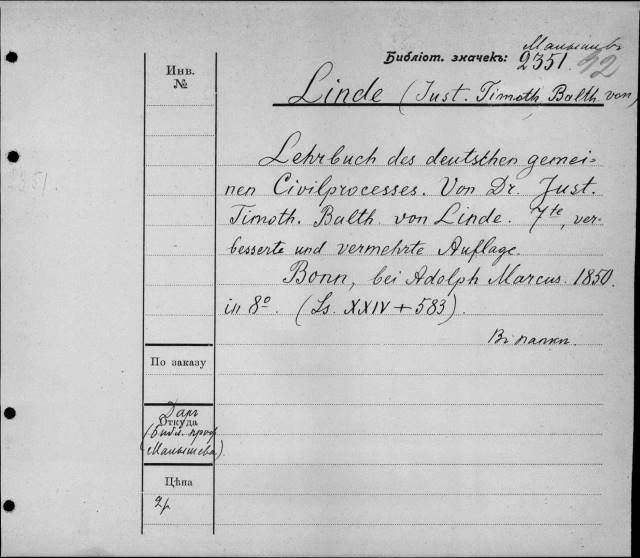 Малышевъ
Библіот. значекъ: 2351. 52
Инв.
№
Linde (Just. Timoth. Balth. von)
2351.
Lehrbuch des deutschen gemei-
nen Civilprocesses. Von Dr. Just.
Timoth. Balth. von Linde. 7te, ver-
besserte und vermehrte Auflage.
Bonn, bei Adolph Marcus. 1850.
in 8o. (Ss. XXIV + 583).
Въ папкѣ.
По заказу
Даръ
Откуда
(библ. проф.
Малышева).
Цѣна
2р